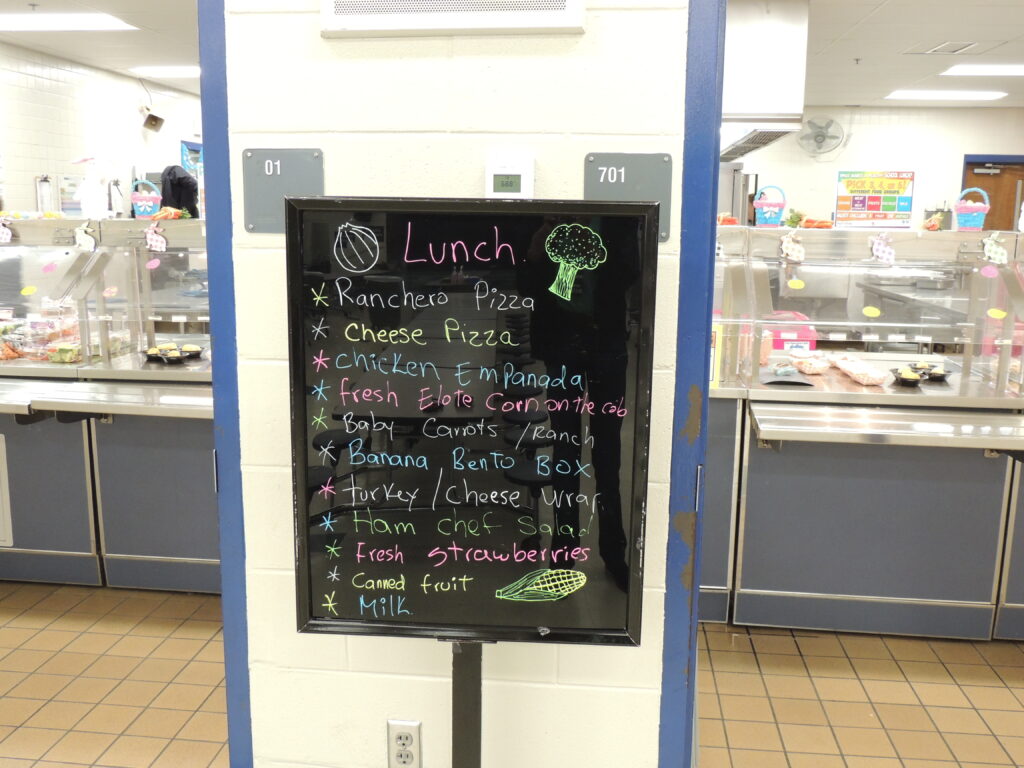 01
701
Lunch
Ranchero Pizza
Cheese Pizza
Chicken Empanada
fresh Elote Corn on the cob
Baby Carrots / Ranch
Banana Bento Box
turkey / Cheese wrap
Ham chef Salad
Fresh strawberries
Canned fruit
Milk
PICK 3, 4, or 5!